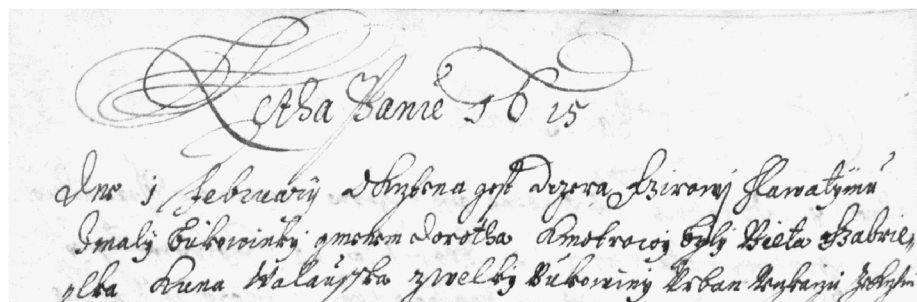 Letha Panie 1615
Dne 1 February Okrztena gest Dczera Irzikowj Hlawatymu
Zmaly Bukowinky gmenem Dorotha Kmotrowy byly Bieta Gabrie,
lka Anna Walausska zwelky Bukowiny Urban